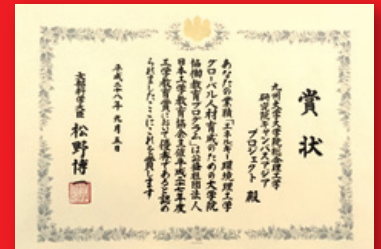 賞状
九州大学大学院総合理工学
研究院キャンパスアジア
プロジェクト 殿
あなたの業績「エネルギー環境理工学
グローバル人材育成のための大学院
協働教育プログラム」は公益社団法人
日本工学教育協会主催平成二十七年度
工学教育賞において優秀であると認め
られましたのでここにこれを賞します
平成二十八年 九月五日
文部科学大臣 松野博一